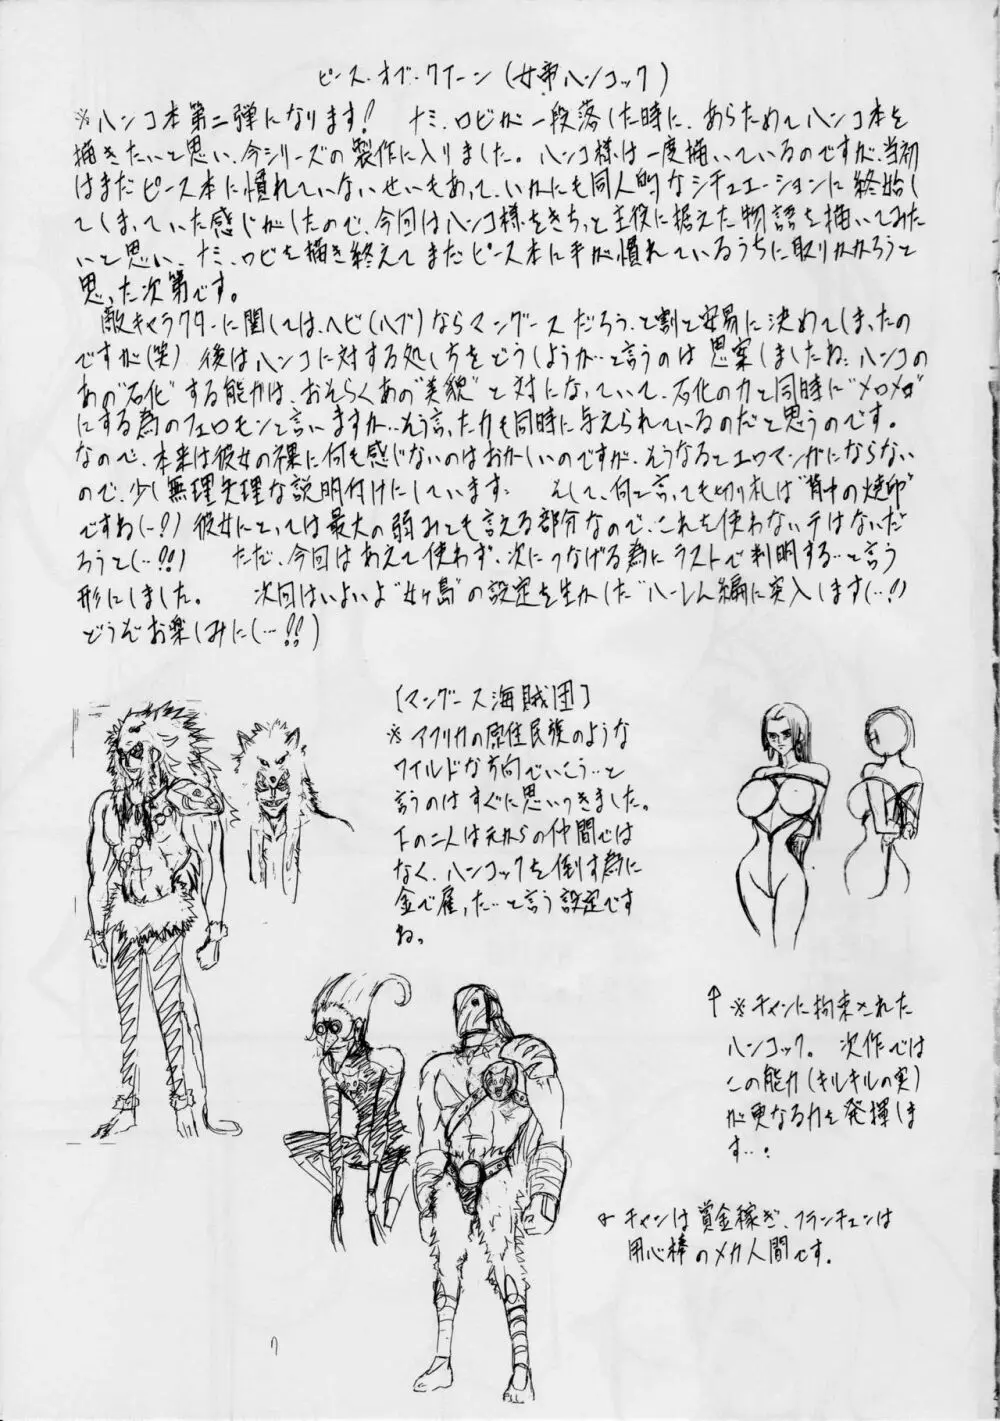 ピース・オブ・クイーン(女帝ハンコック)
※ハンコ本第二弾になります! ナミ、ロビが一段落した時に、あらためてハンコ本を
描きたいと思い、今シリーズの製作に入りました。ハンコ様は一度描いているのですが、当初
はまだピース本に慣れていないせいもあって、いかにも同人的なシチュエーションに終始し
てしまっていた感じがしたので、今回はハンコ様をきちっと主役に据えた物語を描いてみた
いと思い、ナミ、ロビを描き終えてまだピース本に手が慣れているうちに取りかかろうと
思った次第です。
敵キャラクターに関しては、ヘビ(ハブ)ならマングースだろう、と割と安易に決めてしまったの
ですが(笑) 後はハンコに対する処し方をどうしようか…と言うのは思案しましたね。ハンコの
あの"石化"する能力は、おそらくあの"美貌"と対になっていて、石化の力と同時に"メロメロ"
にする為のフェロモンと言いますか…そう言った力も同時に与えられているのだと思うのです。
なので、本来は彼女の裸に何も感じないのはおかしいのですが、そうなるとエロマンガにならない
ので、少し無理矢理な説明付けにしています。 そして、何と言っても切り札は"背中の焼印"
ですね(…!?) 彼女にとっては最大の弱みとも言える部分なので、これを使わないテはないだ
ろうと(…!!) ただ、今回はあえて使わず、次につなげる為にラストで判明する…と言う
形にしました。 次回はいよいよ"女ヶ島"の設定を生かした"ハーレム編に突入します(…!)
どうぞお楽しみに(…!!)
[マングース海賊団]
※アフリカの原住民族のような
ワイルドな方向でいこう…と
言うのはすぐに思いつきました。
下の二人は元からの仲間では
なく、ハンコックを倒す為に
金で雇った…と言う設定です
ね。
↑※チャンに拘束された
ハンコック。次作では
この能力(キルキルの実)
が更なる力を発揮しま
す…!
チャンは賞金稼ぎ、フランチェンは
用心棒のメカ人間です。